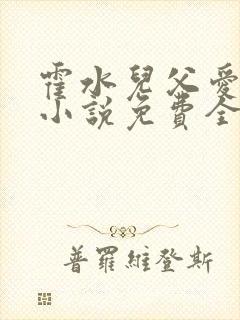 霍水兒父愛
小說免費全
普羅維登斯